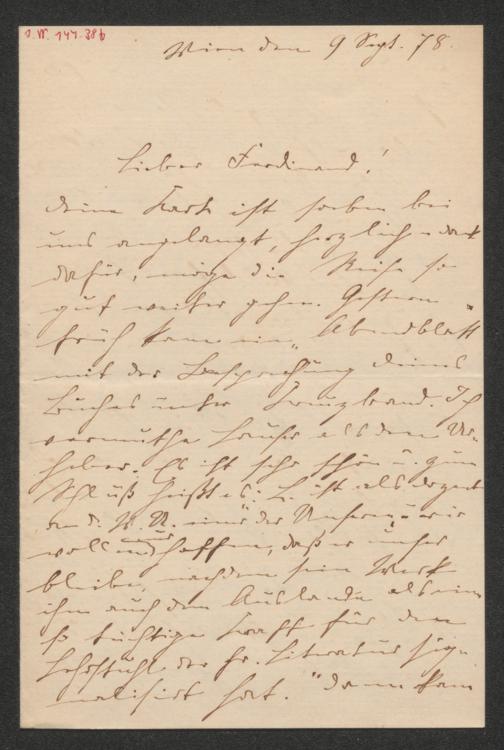 J.N. 144.386
Wien den 9 Sept. 78.
Lieber Ferdinand!
Deine Karte ist soeben bei
uns angelangt, herzlichen Dank
dafür, möge die Reise so
gut weiter gehen. Gestern
früh kam ein „Abendblatt“
mit der Besprechung Deines
Buches unter Kreuzband. Ich
vermuthe als den Ur-
heber. Es ist sehr schön u. zum
Schluß heißt es: „L. ist als Dozent
an d. W. U. einer der Unseren, u. wir
wollen nur hoffen, daß er unser
bleibe, nachdem sein Werk
ihn auch dem Auslande als eine
so tüchtige Kraft für den
Lehrstuhl der fr. Literatur sig-
nalisirt hat.“ Dann kam